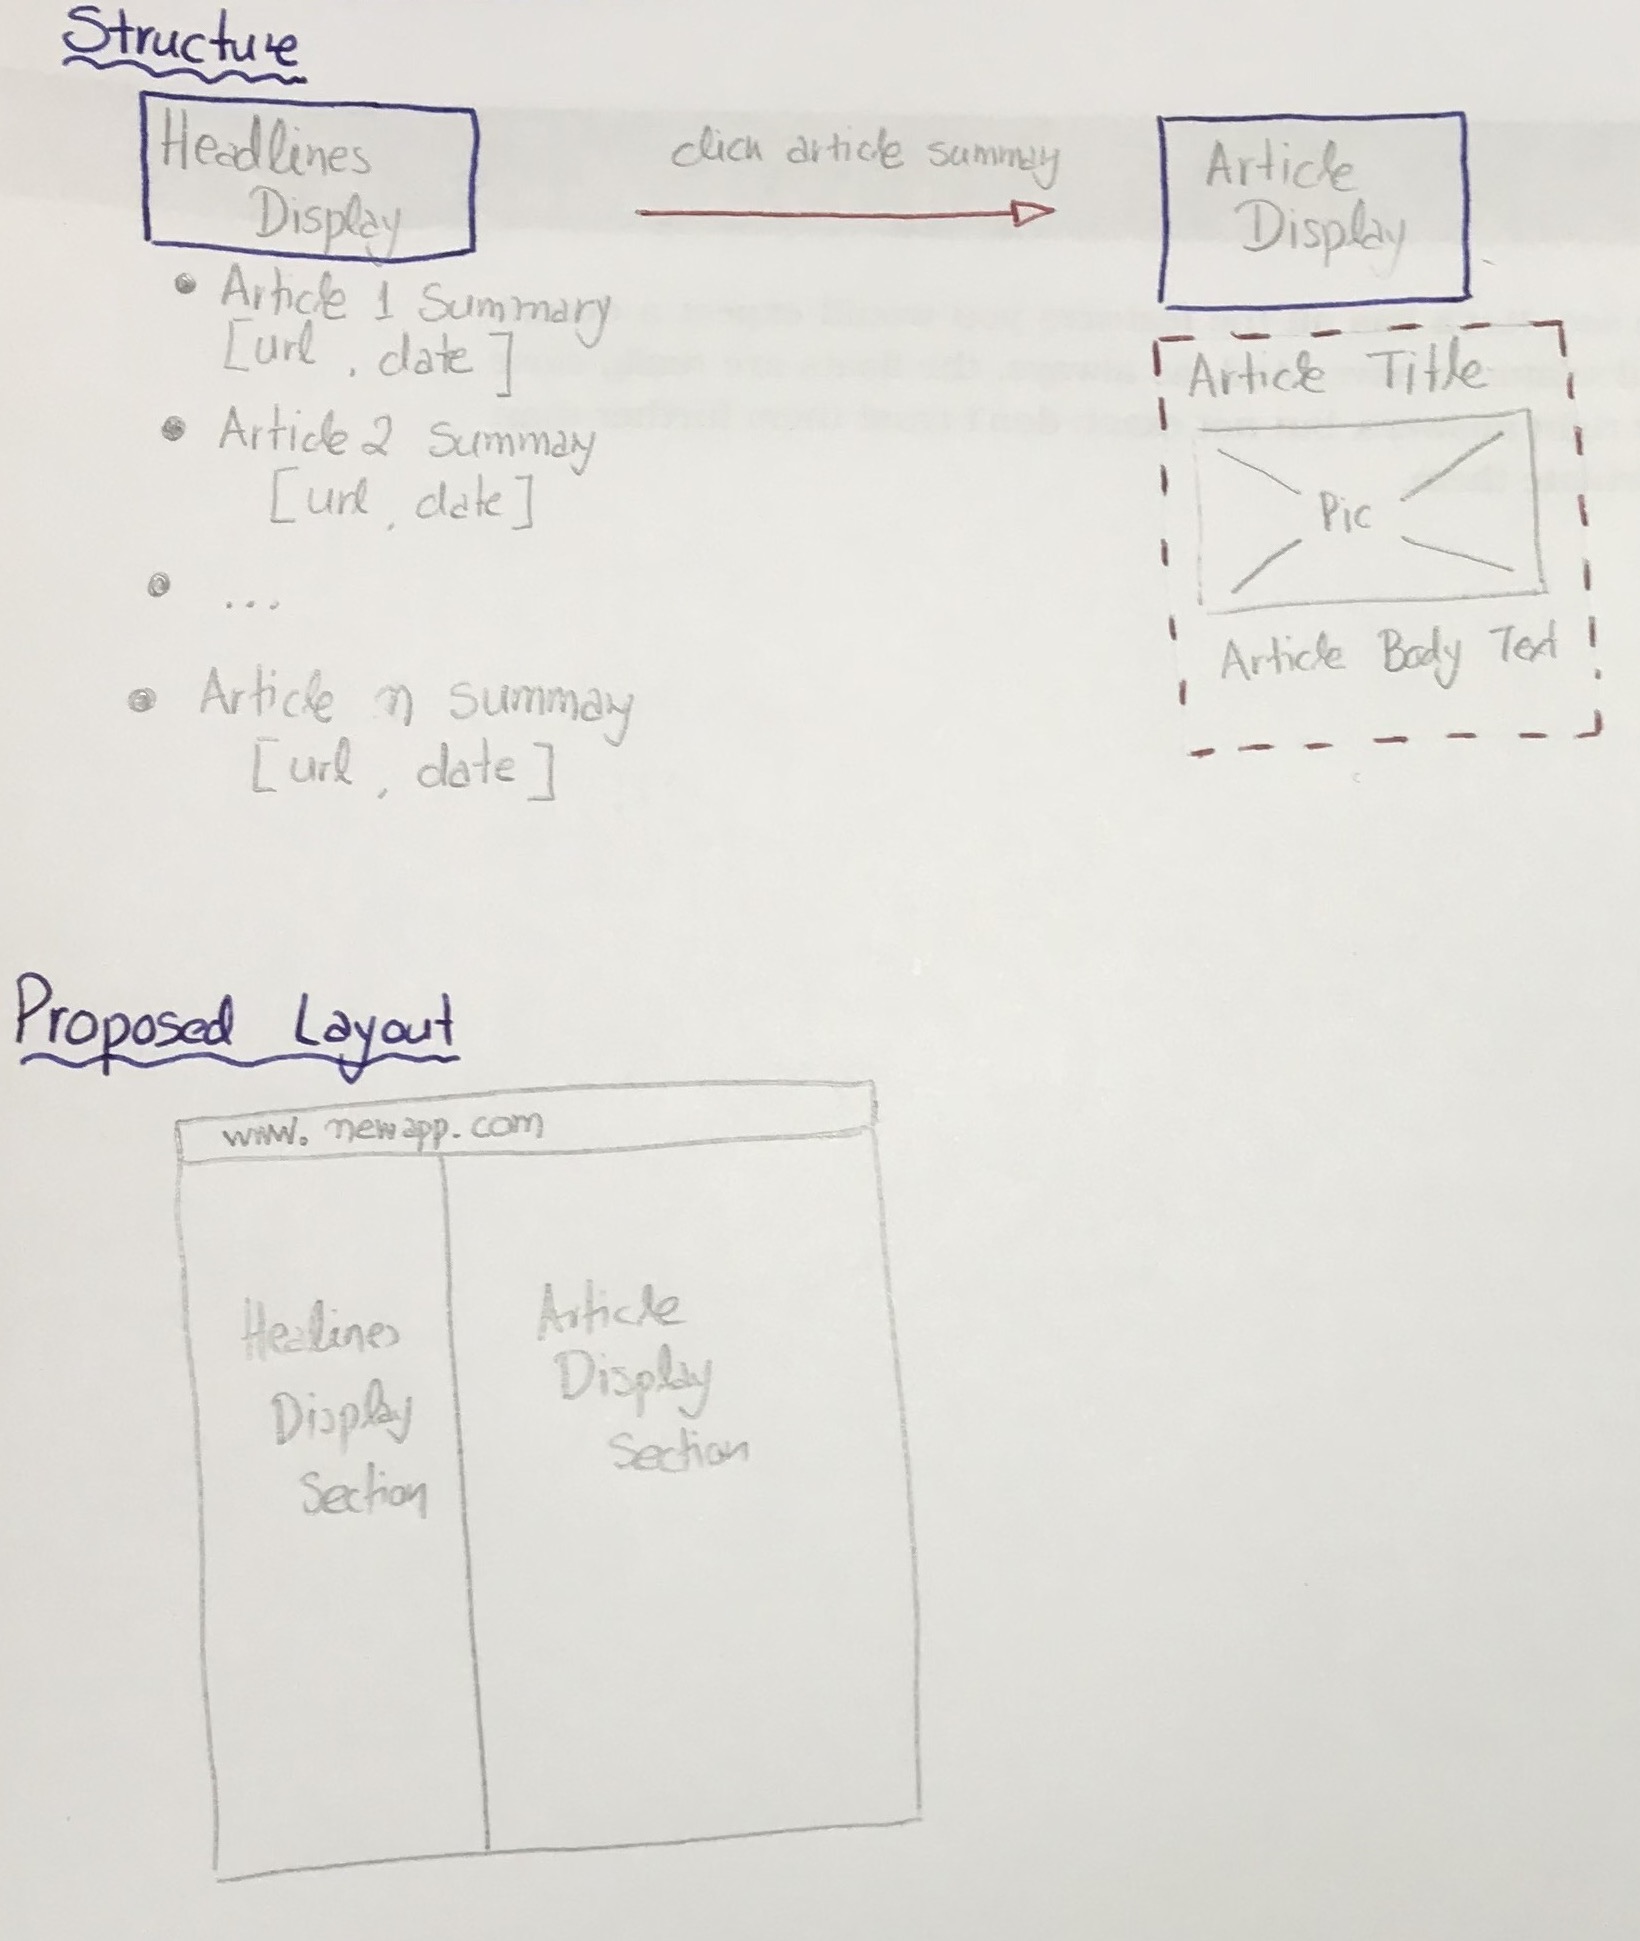 Structure
Headlines
Display
click article summay
Article
Display
Article 1 Summary
[url, date]
Article 2 Summay
[url, date]
...
Article n Summay
[url, date]
Article Title
Pic
Article Body Text
Proposed Layout
www.newapp.com
Healines
Display
Section
Article
Display
Section